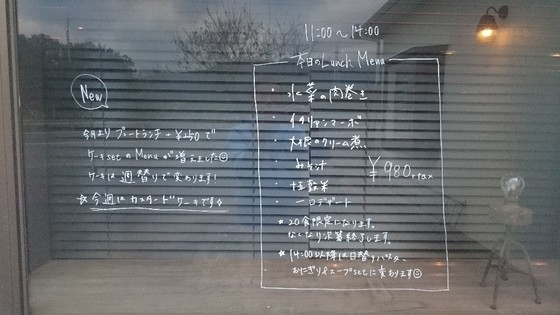 11:00〜14:00
今日のLunch Menu
・水菜の肉巻き
・イタリアンマーボ
・大根のクリーム煮
・みそ汁
・十五穀米
・一口デザート
¥980+tax
*20食限定になります。
なくなり次第終了します。
*14:00以降は日替りパスタ、
おにぎり&スープsetに変わります☺
New
今月よりプレートランチ+¥250で
ケーキsetのMenuが増えました☺
ケーキは週替りで変わります!
☆今週はカスタードケーキです☆